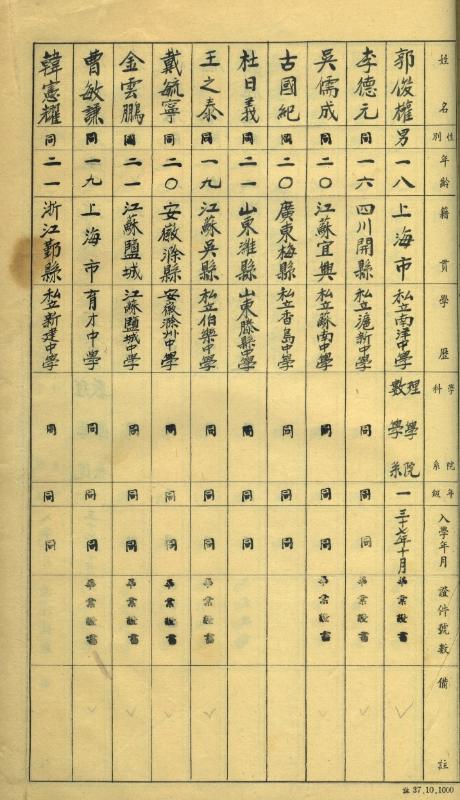 姓名 性別 年齡 籍貫 學歷 學院科系 年級 入學年月 證件號數 備註
郭俊權 男 一八 上海市 私立南洋中學 理學院數學系 一 三十七年十月 畢業證書
李德元 同 一六 四川開縣 私立滬新中學 同 同 同 畢業證書
吳儒成 同 二〇 江蘇宜興 私立蘇南中學 同 同 同 畢業證書
古國紀 同 二〇 廣東梅縣 私立香島中學 同 同 同
杜日義 同 二一 山東濰縣 山東滕縣中學 同 同 同
王之泰 同 一九 江蘇吳縣 私立伯樂中學 同 同 同 畢業證書
戴毓寧 同 二〇 安徽滁縣 安徽滁州中學 同 同 同 畢業證書
金雲鵬 同 二一 江蘇鹽城 江蘇鹽城中學 同 同 同 畢業證書
曹敏謙 同 一九 上海市 育才中學 同 同 同 畢業證書
韓憲耀 同 二一 浙江鄞縣 私立新建中學 同 同 同
37.10.1000